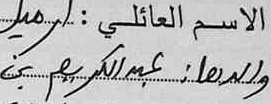 الاسم العائلي : ارميل
والدها: عبد الكريم بن